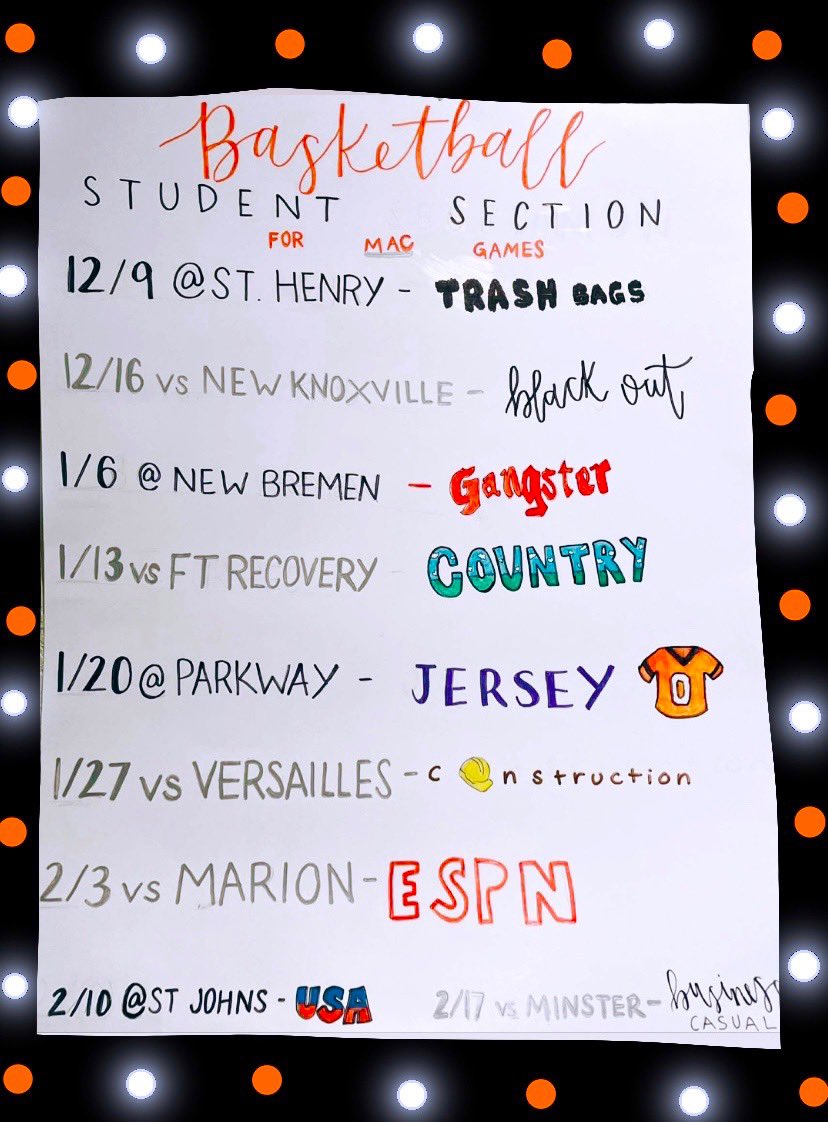 Basketball
STUDENT SECTION
FOR MAC GAMES
12/9 @ST. HENRY - TRASH BAGS
12/16 vs NEW KNOXVILLE - black out
1/6 @ NEW BREMEN - Gangster
1/13 vs FT RECOVERY COUNTRY
1/20 @ PARKWAY - JERSEY 0
1/27 vs VERSAILLES - cnstruction
2/3 vs MARION - ESPN
2/10 @ST JOHNS - USA 2/17 vs MINSTER - business
CASUAL